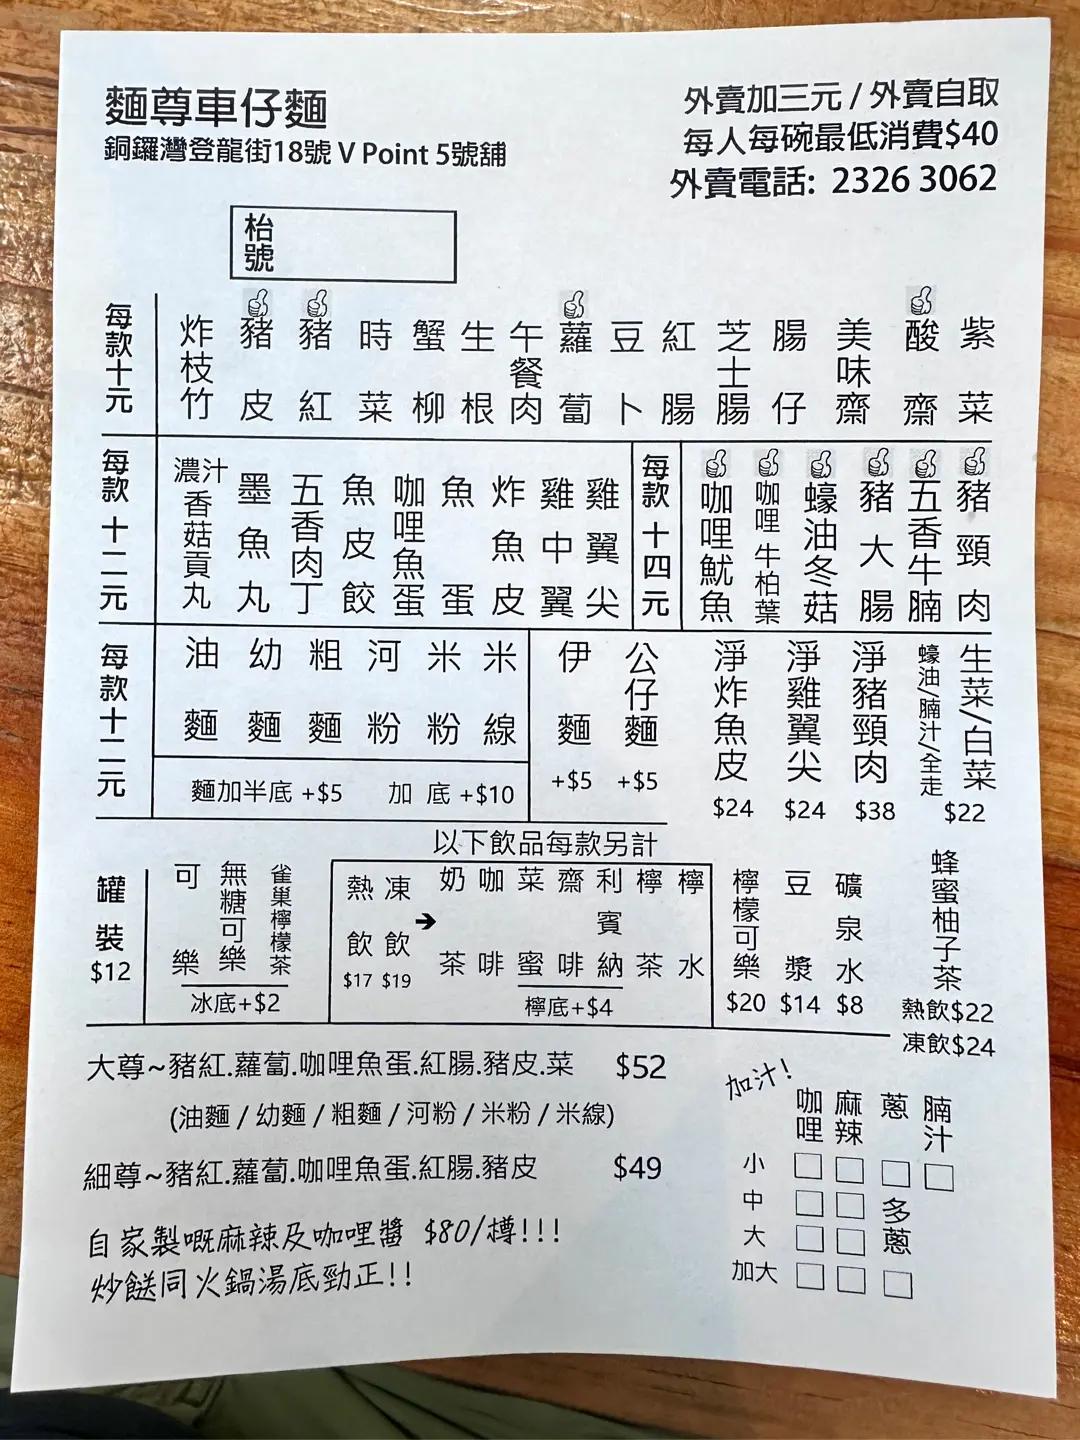 麵尊車仔麵
銅鑼灣登龍街18號 V Point 5號舖
外賣加三元 / 外賣自取
每人每碗最低消費$40
外賣電話: 2326 3062
枱號
每款十元
炸枝竹
豬皮
豬紅
時菜
蟹柳
生根
午餐肉
蘿蔔
豆卜
紅腸
芝士腸
腸仔
美味齋
酸齋
紫菜
每款十二元
濃汁香菇貢丸
墨魚丸
五香肉丁
魚皮餃
咖哩魚蛋
魚蛋
炸魚皮
雞中翼
雞翼尖
每款十四元
咖哩魷魚
咖哩牛柏葉
蠔油冬菇
豬大腸
五香牛腩
豬頸肉
每款十二元
油麵
幼麵
粗麵
河粉
米粉
米線
麵加半底 +$5 加底 +$10
伊麵 +$5
公仔麵 +$5
淨炸魚皮 $24
淨雞翼尖 $24
淨豬頸肉 $38
蠔油/腩汁/全走
生菜/白菜
$22
以下飲品每款另計
罐裝 $12
可樂
無糖可樂
雀巢檸檬茶
冰底+$2
熱飲 $17
凍飲 $19
➔
奶茶
咖啡
菜蜜
齋啡
利賓納
檸茶
檸水
檸底+$4
檸檬可樂 $20
豆漿 $14
礦泉水 $8
蜂蜜柚子茶
熱飲$22
凍飲$24
大尊~豬紅.蘿蔔.咖哩魚蛋.紅腸.豬皮.菜 $52
(油麵 / 幼麵 / 粗麵 / 河粉 / 米粉 / 米線)
細尊~豬紅.蘿蔔.咖哩魚蛋.紅腸.豬皮 $49
自家製嘅麻辣及咖哩醬 $80/樽!!!
炒餸同火鍋湯底勁正!!
加汁!
咖哩 麻辣 蔥 腩汁
小 □ □ □ □
中 □ □ 多蔥
大 □ □
加大 □ □ □